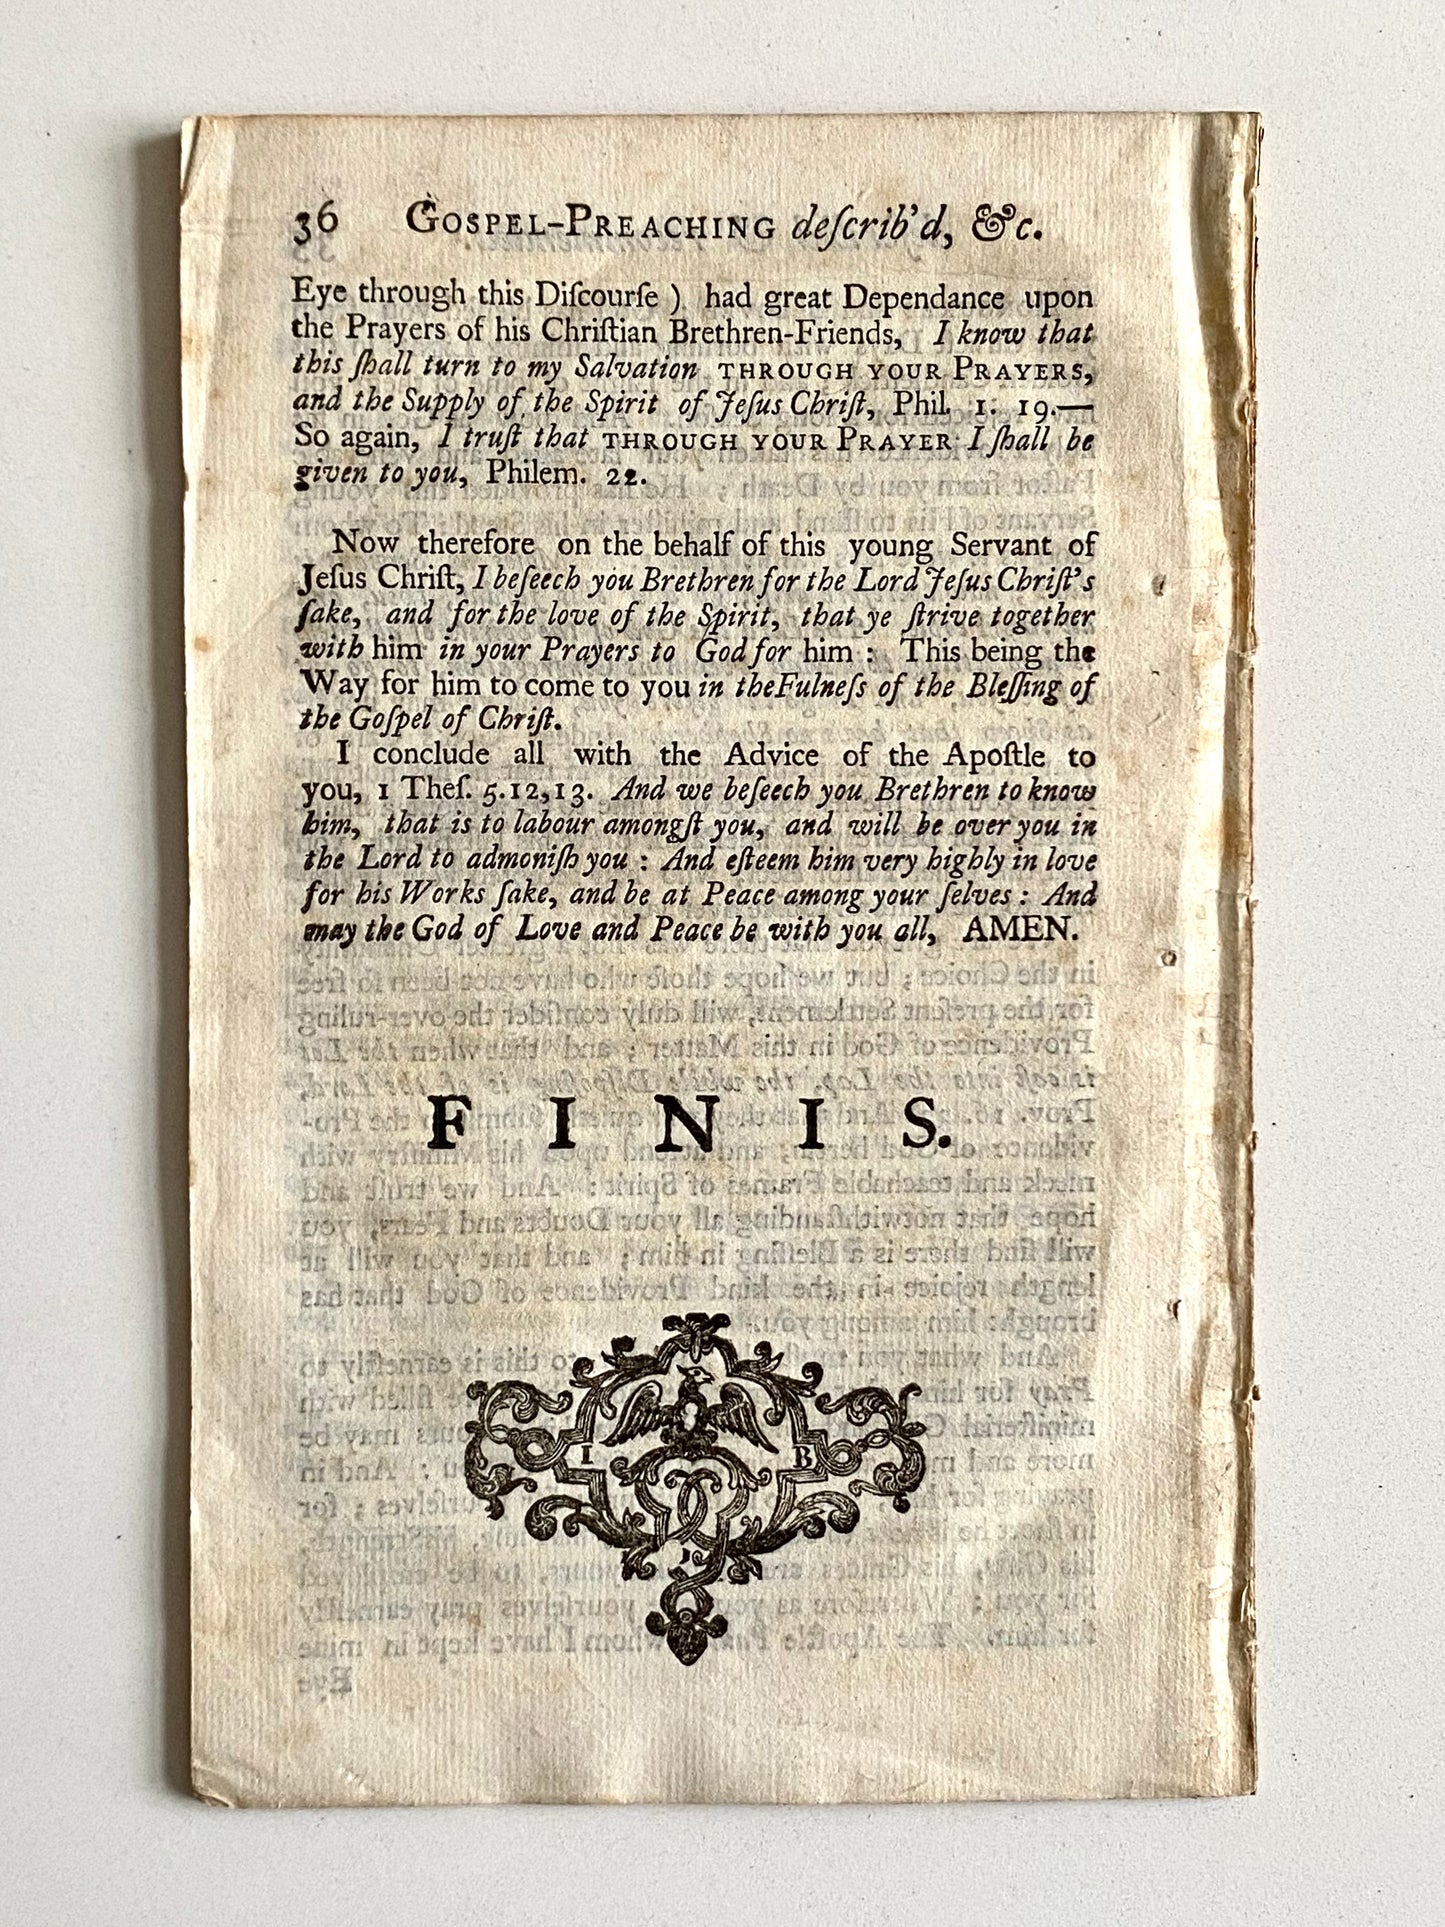 36 GOSPEL-PREACHING deſcrib'd, &c.
Eye through this Diſcourſe ) had great Dependance upon
the Prayers of his Chriſtian Brethren-Friends, I know that
this ſhall turn to my Salvation THROUGH YOUR PRAYERS,
and the Supply of the Spirit of Jeſus Chriſt, Phil. 1. 19.—
So again, I truſt that THROUGH YOUR PRAYER I ſhall be
given to you, Philem. 22.
Now therefore on the behalf of this young Servant of
Jeſus Chriſt, I beſeech you Brethren for the Lord Jeſus Chriſt's
ſake, and for the love of the Spirit, that ye ſtrive together
with him in your Prayers to God for him : This being the
Way for him to come to you in theFulneſs of the Bleſſing of
the Goſpel of Chriſt.
I conclude all with the Advice of the Apoſtle to
you, 1 Theſ. 5.12,13. And we beſeech you Brethren to know
him, that is to labour amongſt you, and will be over you in
the Lord to admoniſh you : And eſteem him very highly in love
for his Works ſake, and be at Peace among your ſelves : And
may the God of Love and Peace be with you all, AMEN.
FINIS.
I B